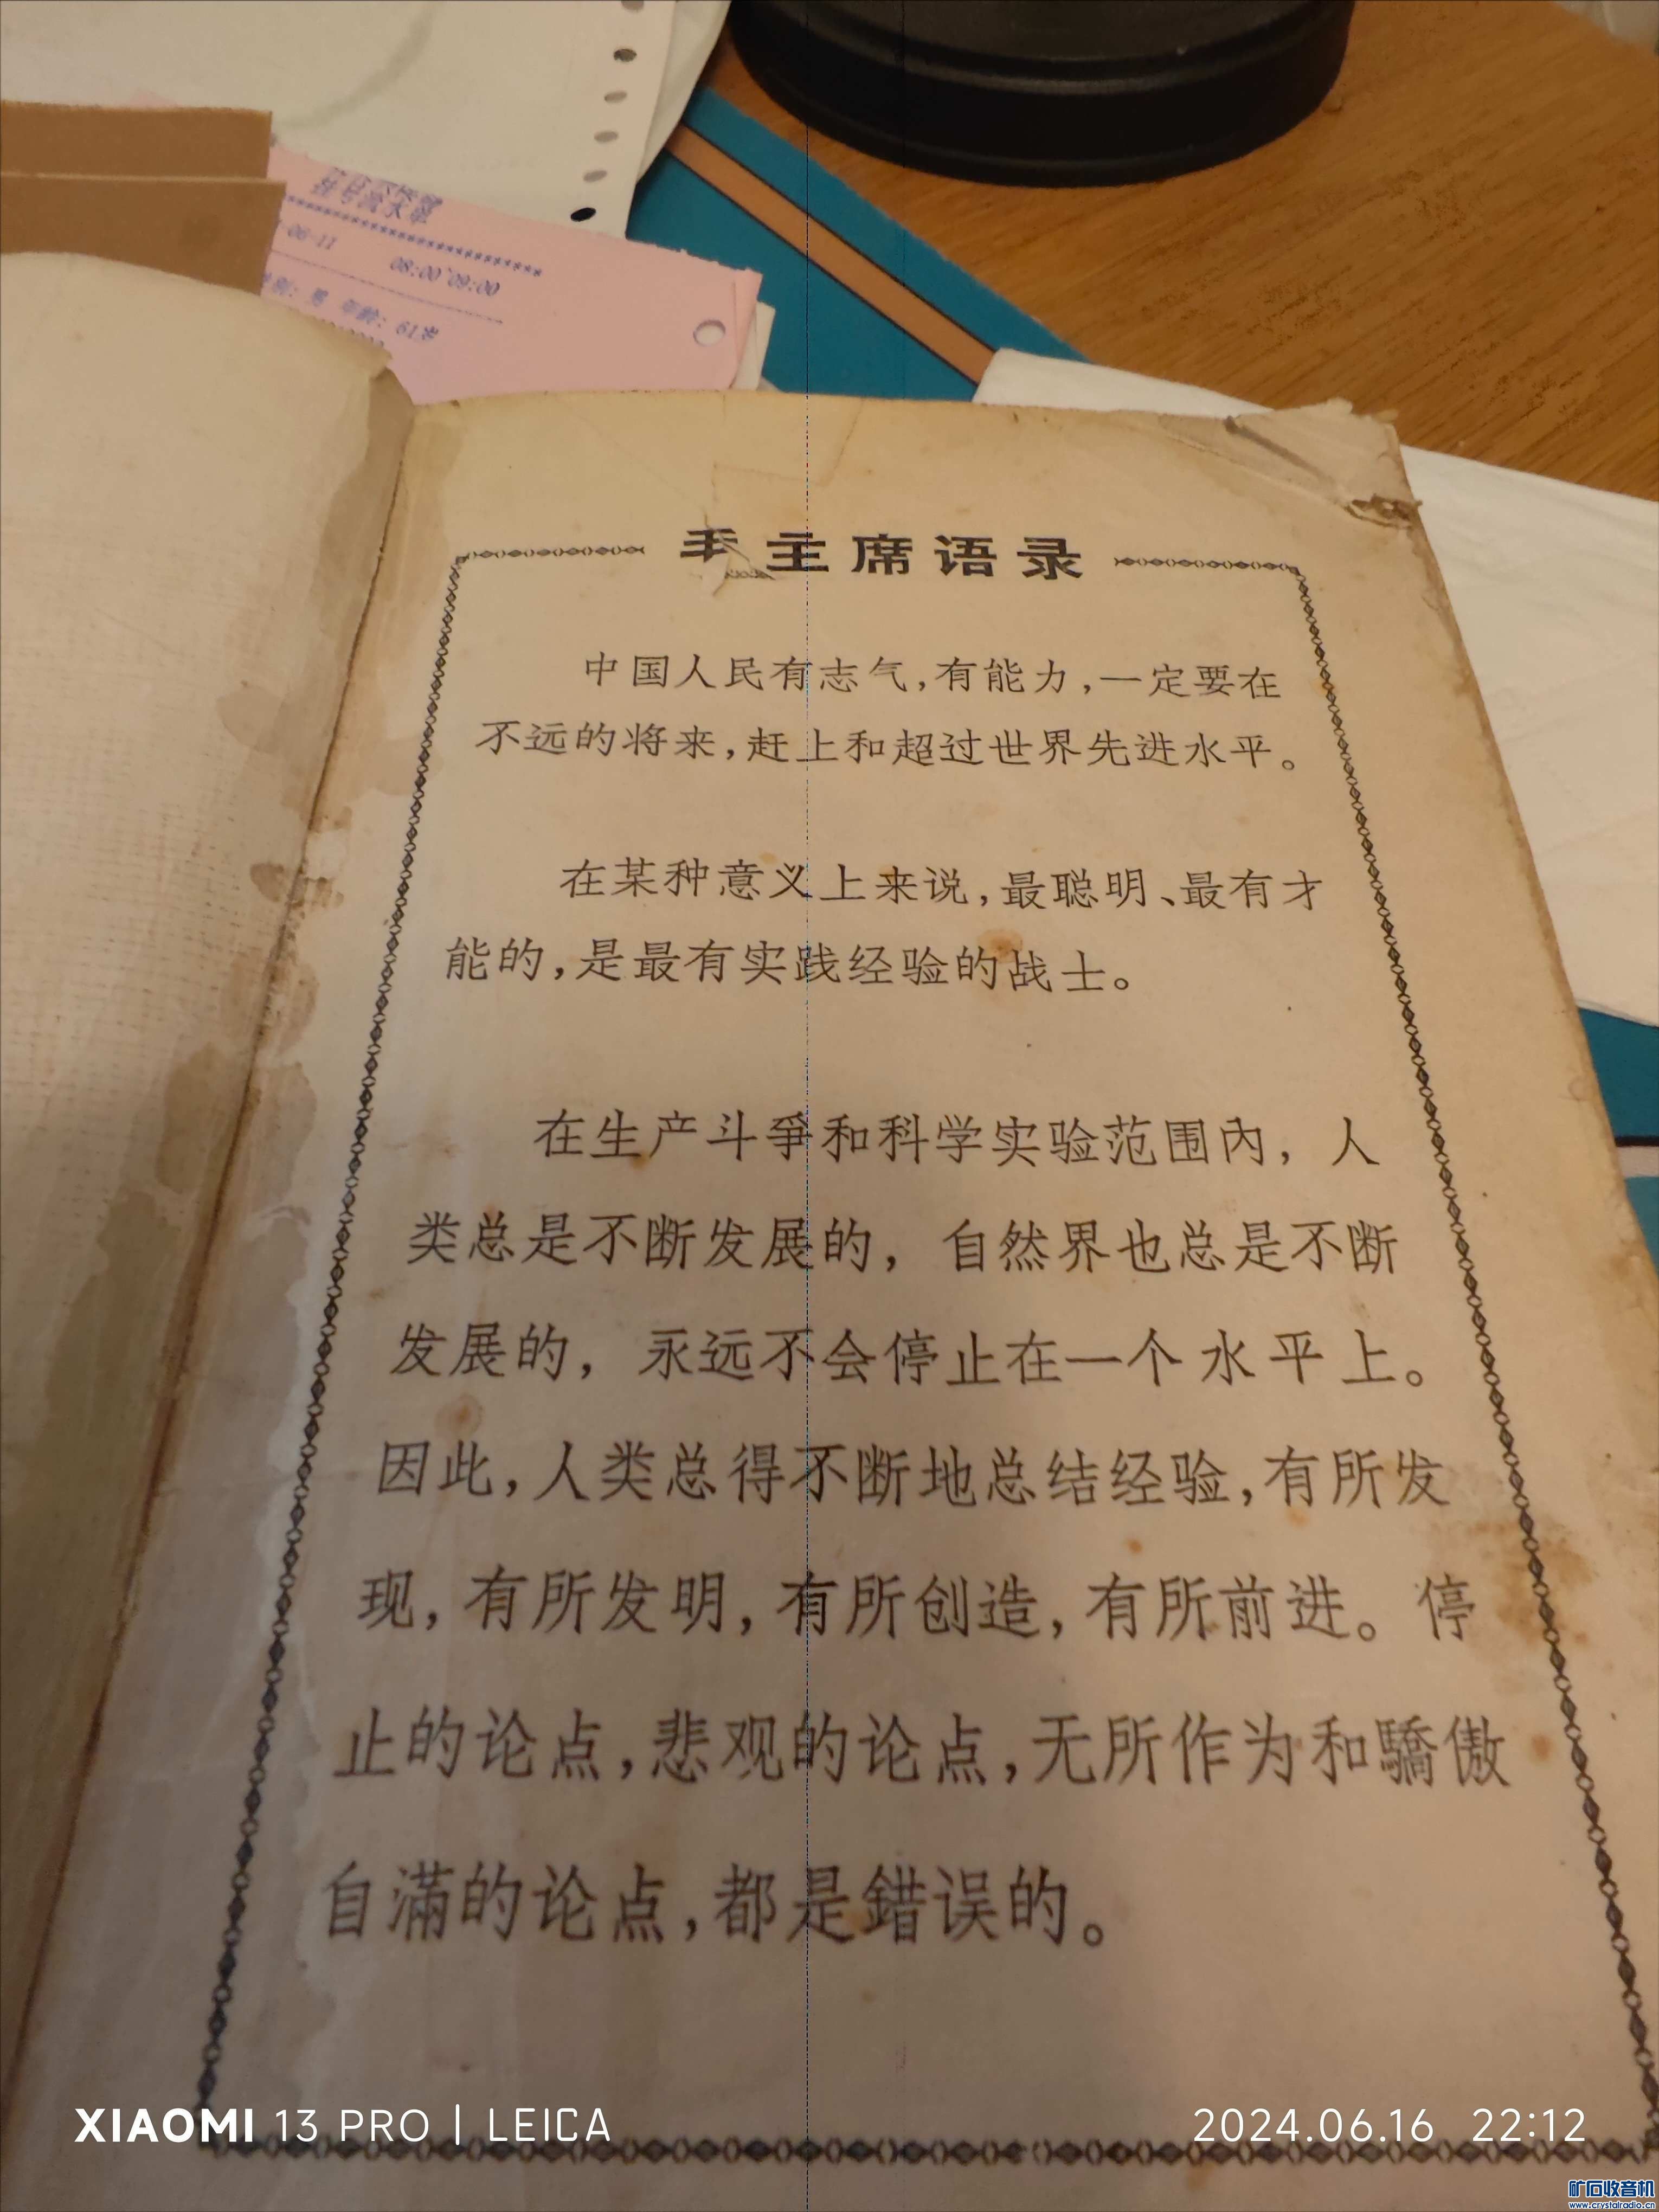 挂号流水单
-06-11
08:00~09:00
性别: 男 年龄: 61岁
毛主席语录
中国人民有志气,有能力,一定要在
不远的将来,赶上和超过世界先进水平。
在某种意义上来说,最聪明、最有才
能的,是最有实践经验的战士。
在生产斗爭和科学实验范围內,人
类总是不断发展的,自然界也总是不断
发展的,永远不会停止在一个水平上。
因此,人类总得不断地总结经验,有所发
现,有所发明,有所创造,有所前进。停
止的论点,悲观的论点,无所作为和驕傲
自滿的论点,都是錯误的。
XIAOMI 13 PRO | LEICA
2024.06.16 22:12
矿石收音机
www.crystalradio.cn